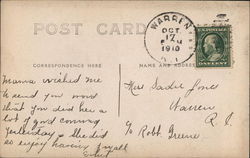 POST CARD
WARREN
OCT
17
1910
R.I.
CORRESPONDENCE HERE
NAME AND ADDRESS
Mama wished me
to send you word
that you did her a
lot of good coming
yesterday. She did
so enjoy having you all
Mrs Sadie Jones
Warren
R. I.
c/o Robt Greene